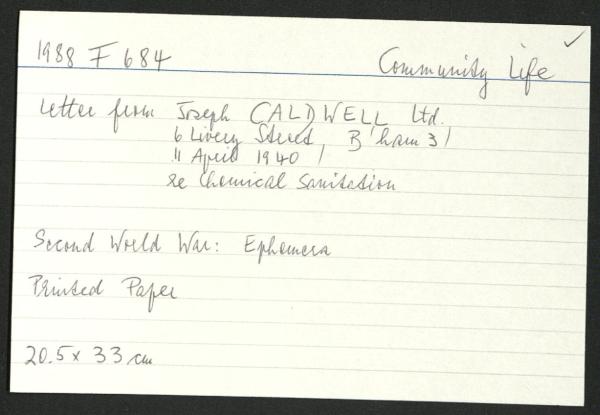 1988 F 684
Community Life
Letter from Joseph CALDWELL Ltd.
6 Livery Street, B'ham 3
11 April 1940
re Chemical Sanitation
Second World War: Ephemera
Printed Paper
20.5 x 33 cm